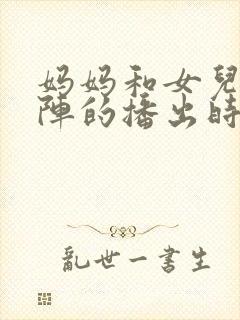 妈妈和女兒
陣的播出時
亂世一書生